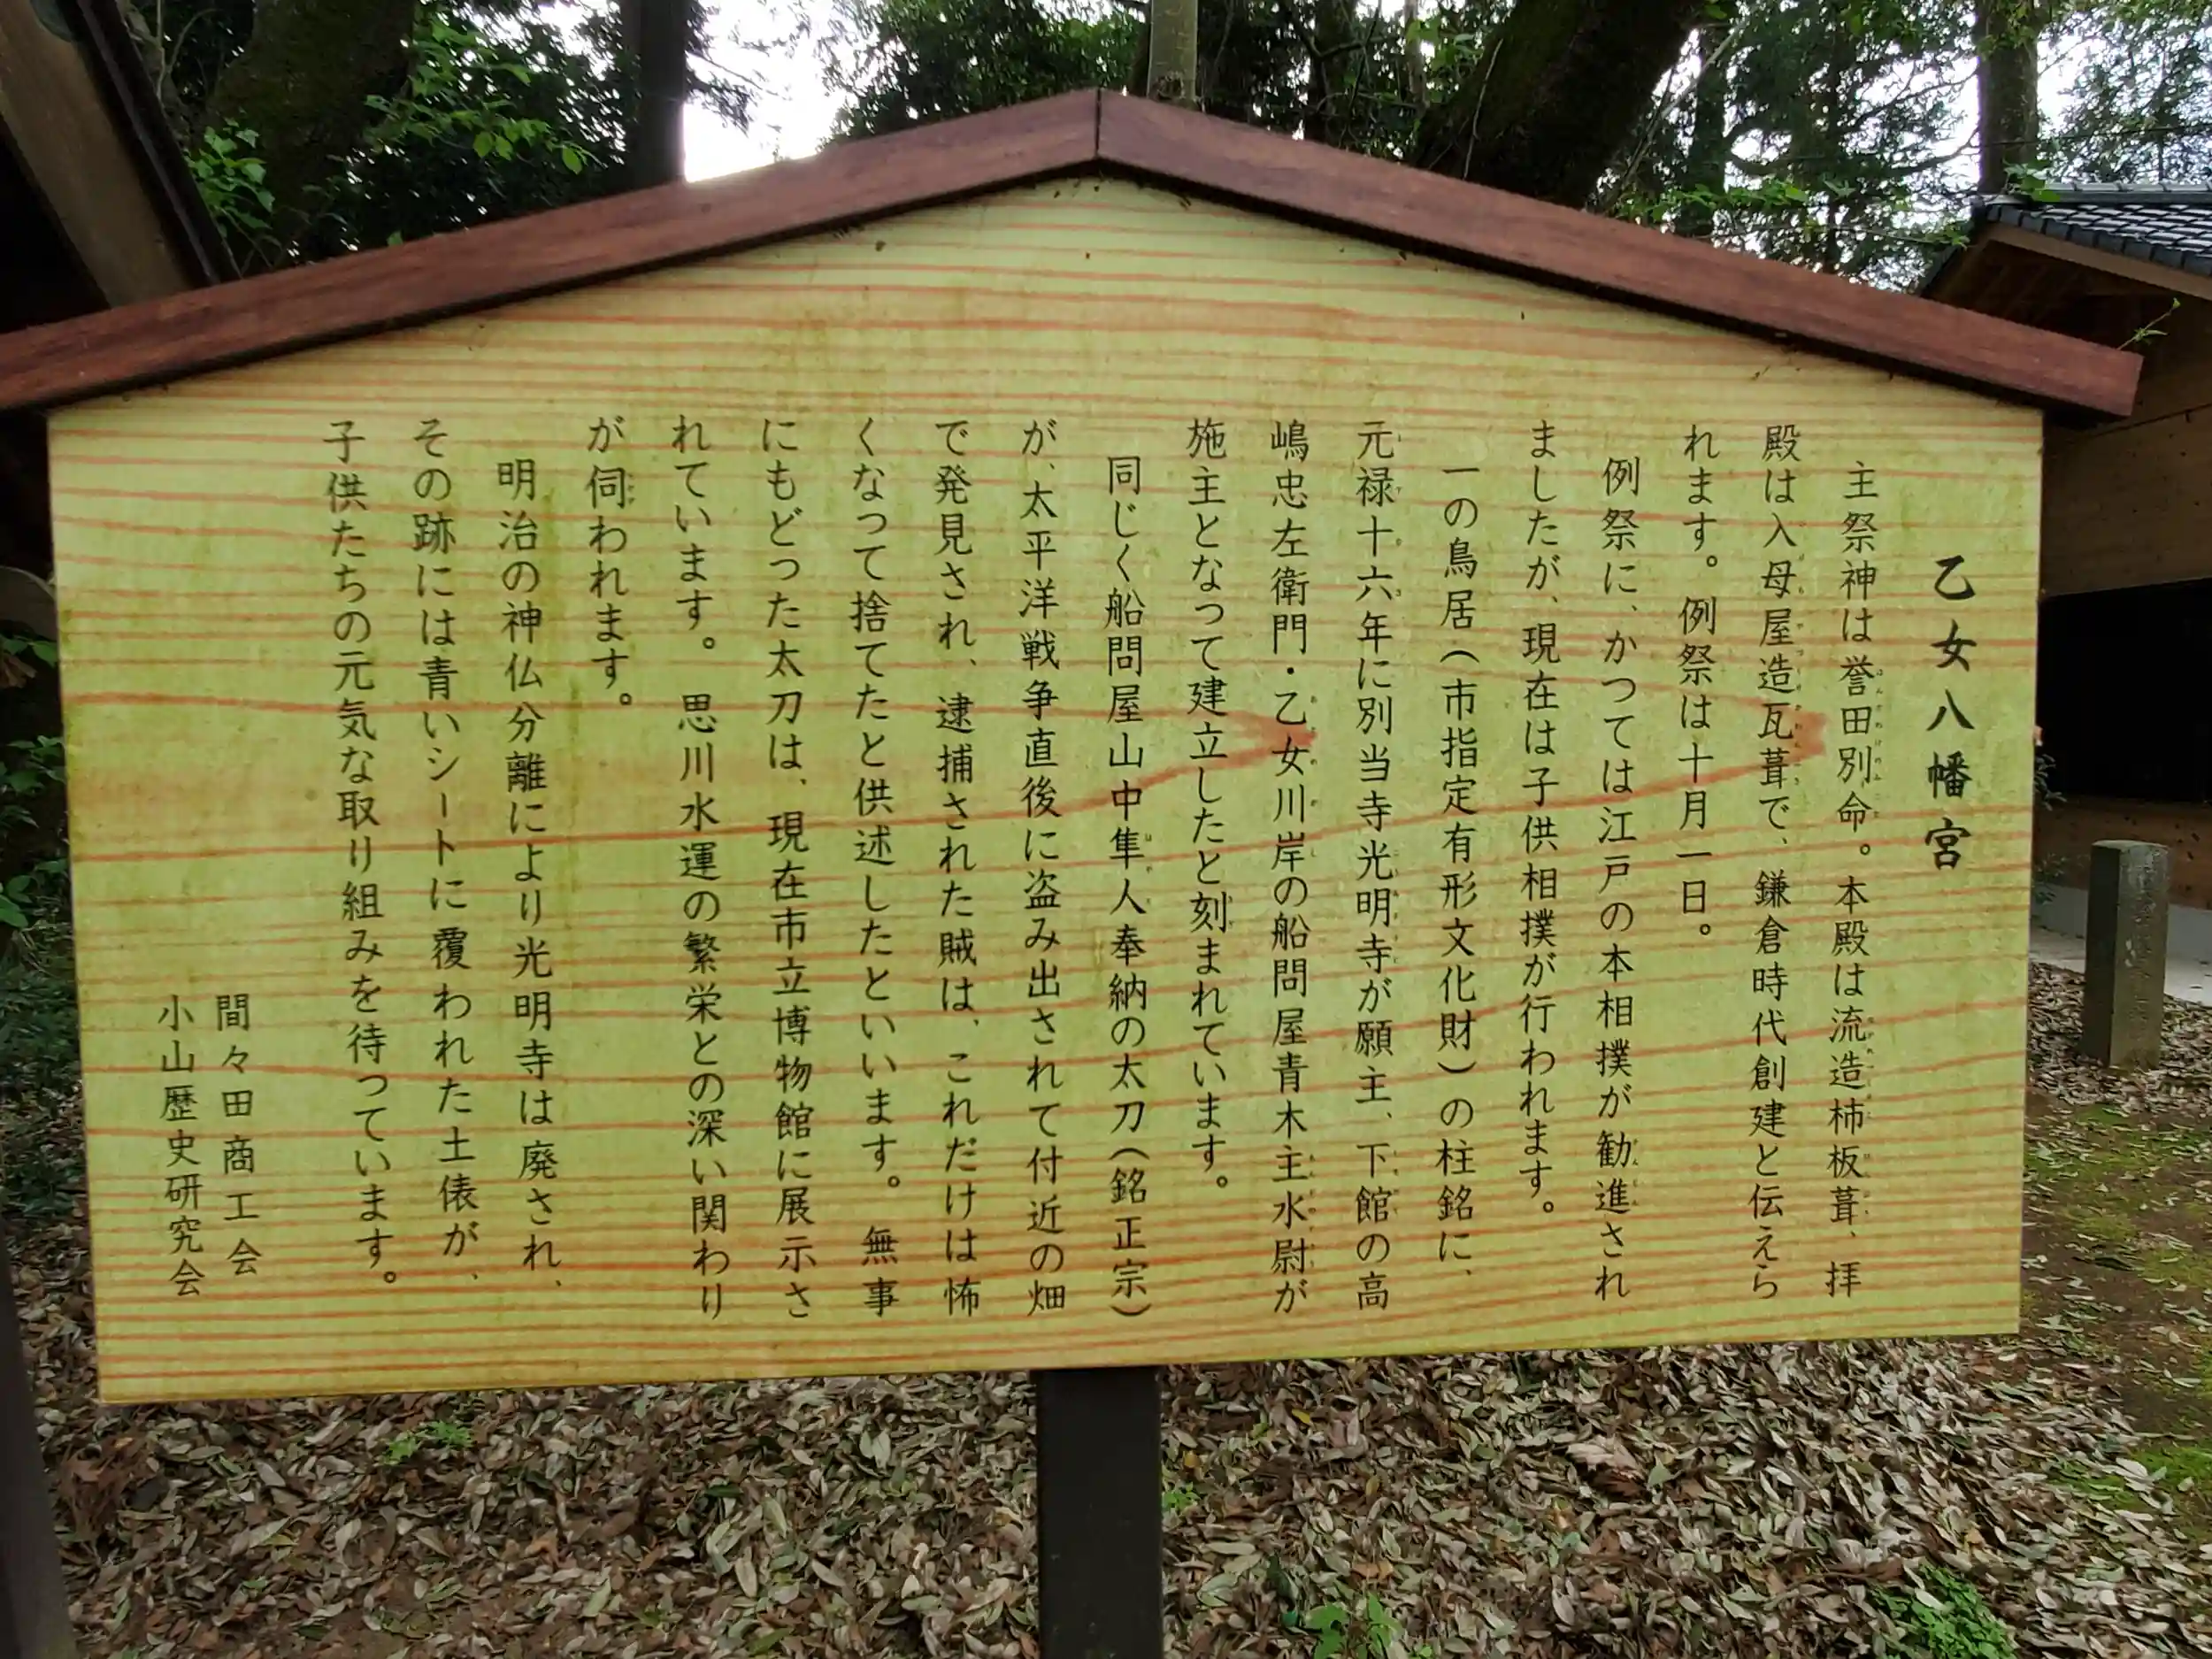 乙女八幡宮
主祭神は誉田別命。本殿は流造柿板葺、拝
殿は入母屋造瓦葺で、鎌倉時代創建と伝えら
れます。例祭は十月一日。
例祭に、かつては江戸の本相撲が勧進され
ましたが、現在は子供相撲が行われます。
一の鳥居(市指定有形文化財)の柱銘に、
元禄十六年に別当寺光明寺が願主、下館の高
嶋忠左衛門・乙女川岸の船問屋青木主水尉が
施主となって建立したと刻まれています。
同じく船問屋山中隼人奉納の太刀(銘正宗)
が、太平洋戦争直後に盗み出されて付近の畑
で発見され、逮捕された賊は、これだけは怖
くなって捨てたと供述したといいます。無事
にもどった太刀は、現在市立博物館に展示さ
れています。思川水運の繁栄との深い関わり
が伺われます。
明治の神仏分離により光明寺は廃され、
その跡には青いシートに覆われた土俵が、
子供たちの元気な取り組みを待っています。
間々田商工会
小山歴史研究会